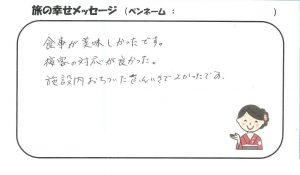 旅の幸せメッセージ (ペンネーム： )
食事が美味しかったです。
接客の対応が良かった。
施設内おちついたふんいきでよかったです。